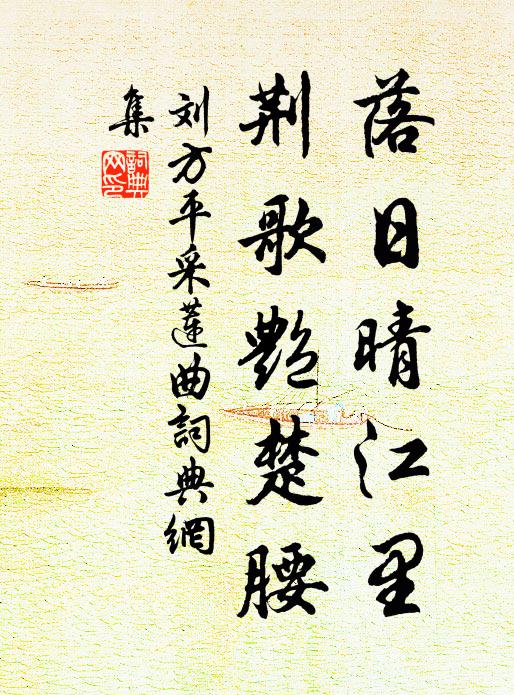 落日晴江里
荆歌艳楚腰
刘方平采莲曲詞典網
集
詞典网印